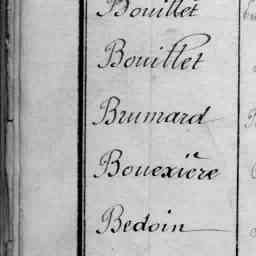 Bouillet
Bouillet
Brumard
Bouexière
Bedoin